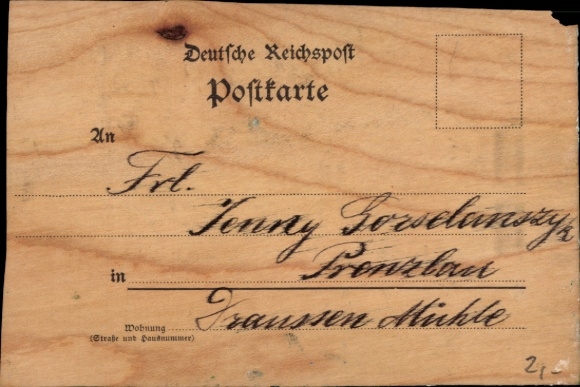 Deutsche Reichspost
Postkarte
An
Frl.
Jenny
in Prenzlau
Wohnung Draussen Mühle
(Straße und Hausnummer)
2,-